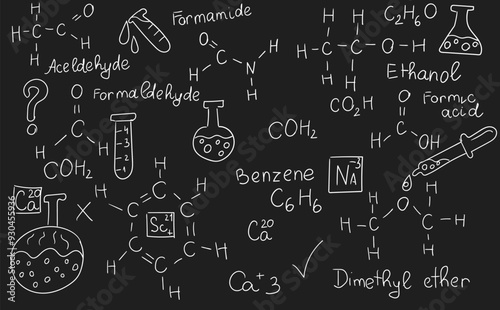 Formamide
C2H6O
H
H - C - C
O
H
H
Aceldehyde
O
C
H
N
H
H
H H
H - C - C - O - H
H H
Ethanol
?
Formaldehyde
O
C
H H
COH2
4
3
2
1
COH2
CO2H
Formic
acid
O
C
H OH
Benzene
C6H6
NA -3
Ca 20
X
H H
C C
H C C H
C C
H H
Sc 21
Ca 20
Ca+3
✓
H H
H - C O C - H
H H
Dimethyl ether
Adobe Stock
#930455936